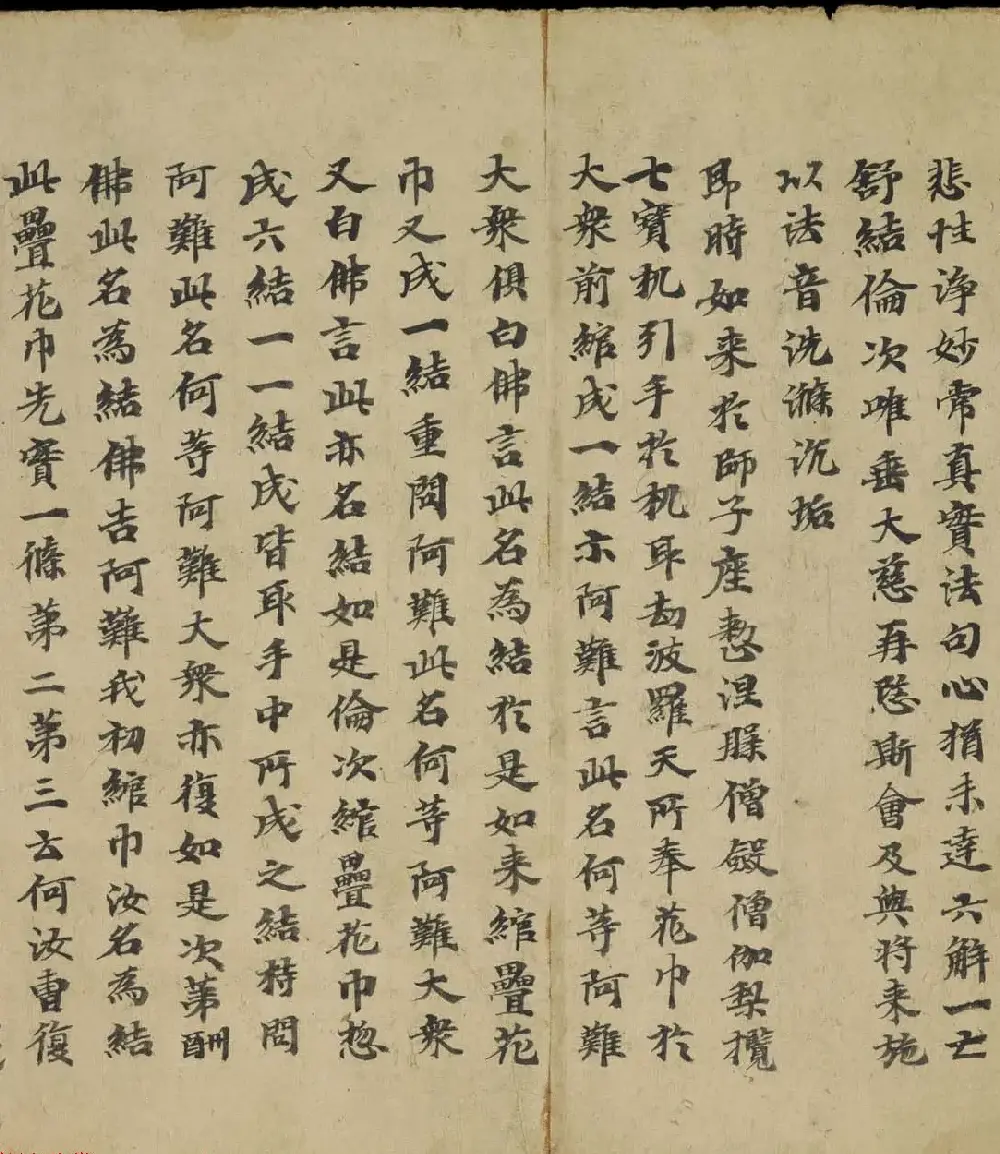 悲性淨妙常真實法句心猶未達六解一亡
舒結倫次唯垂大慈再愍斯會及與將来施
以法音洗滌沉垢
即時如来於師子座整涅膿僧斂僧伽梨攬
七寶机引手於机取劫波羅天所奉花巾於
大衆前綰成一結示阿難言此名何等阿難
大衆俱白佛言此名為結於是如来綰疊花
巾又成一結重問阿難此名何等阿難大衆
又白佛言此亦名結如是倫次綰疊花巾惣
成六結一一結成皆取手中所成之結持問
阿難此名何等阿難大衆亦復如是次第酬
佛此名為結佛告阿難我初綰巾汝名為結
此疊花巾先實一條第二第三云何汝曹復